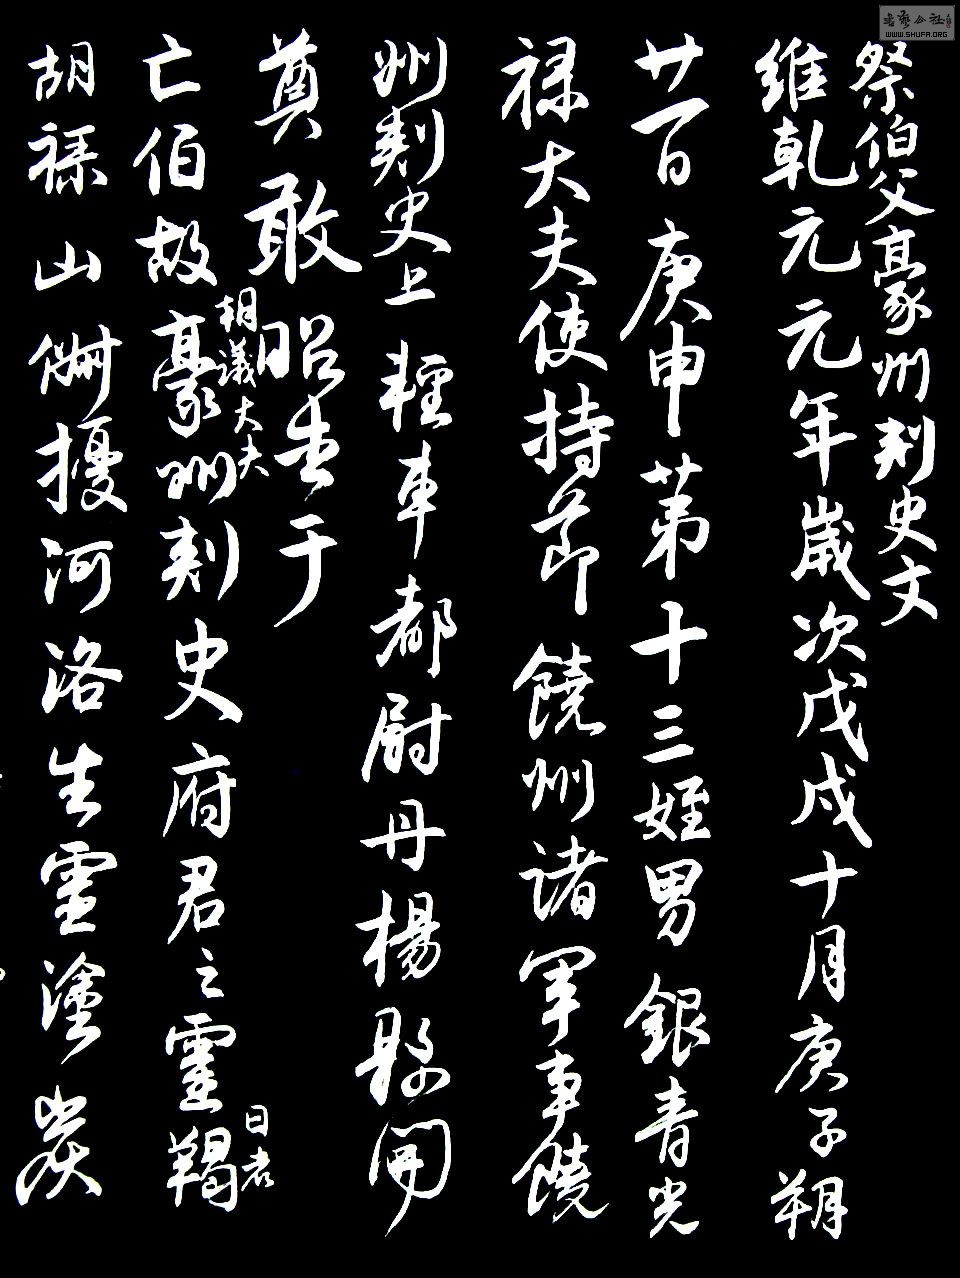 祭伯父豪州刺史文
維乾元元年歲次戊戌十月庚子朔
廿一日庚申第十三姪男銀青光
祿大夫使持節饒州諸軍事饒
州刺史上輕車都尉丹楊縣開
奠敢昭告于
朝議大夫
亡伯故豪州刺史府君之靈羯
日者
胡祿山俶擾河洛生靈塗炭
書藝公社
WWW.SHUFA.ORG